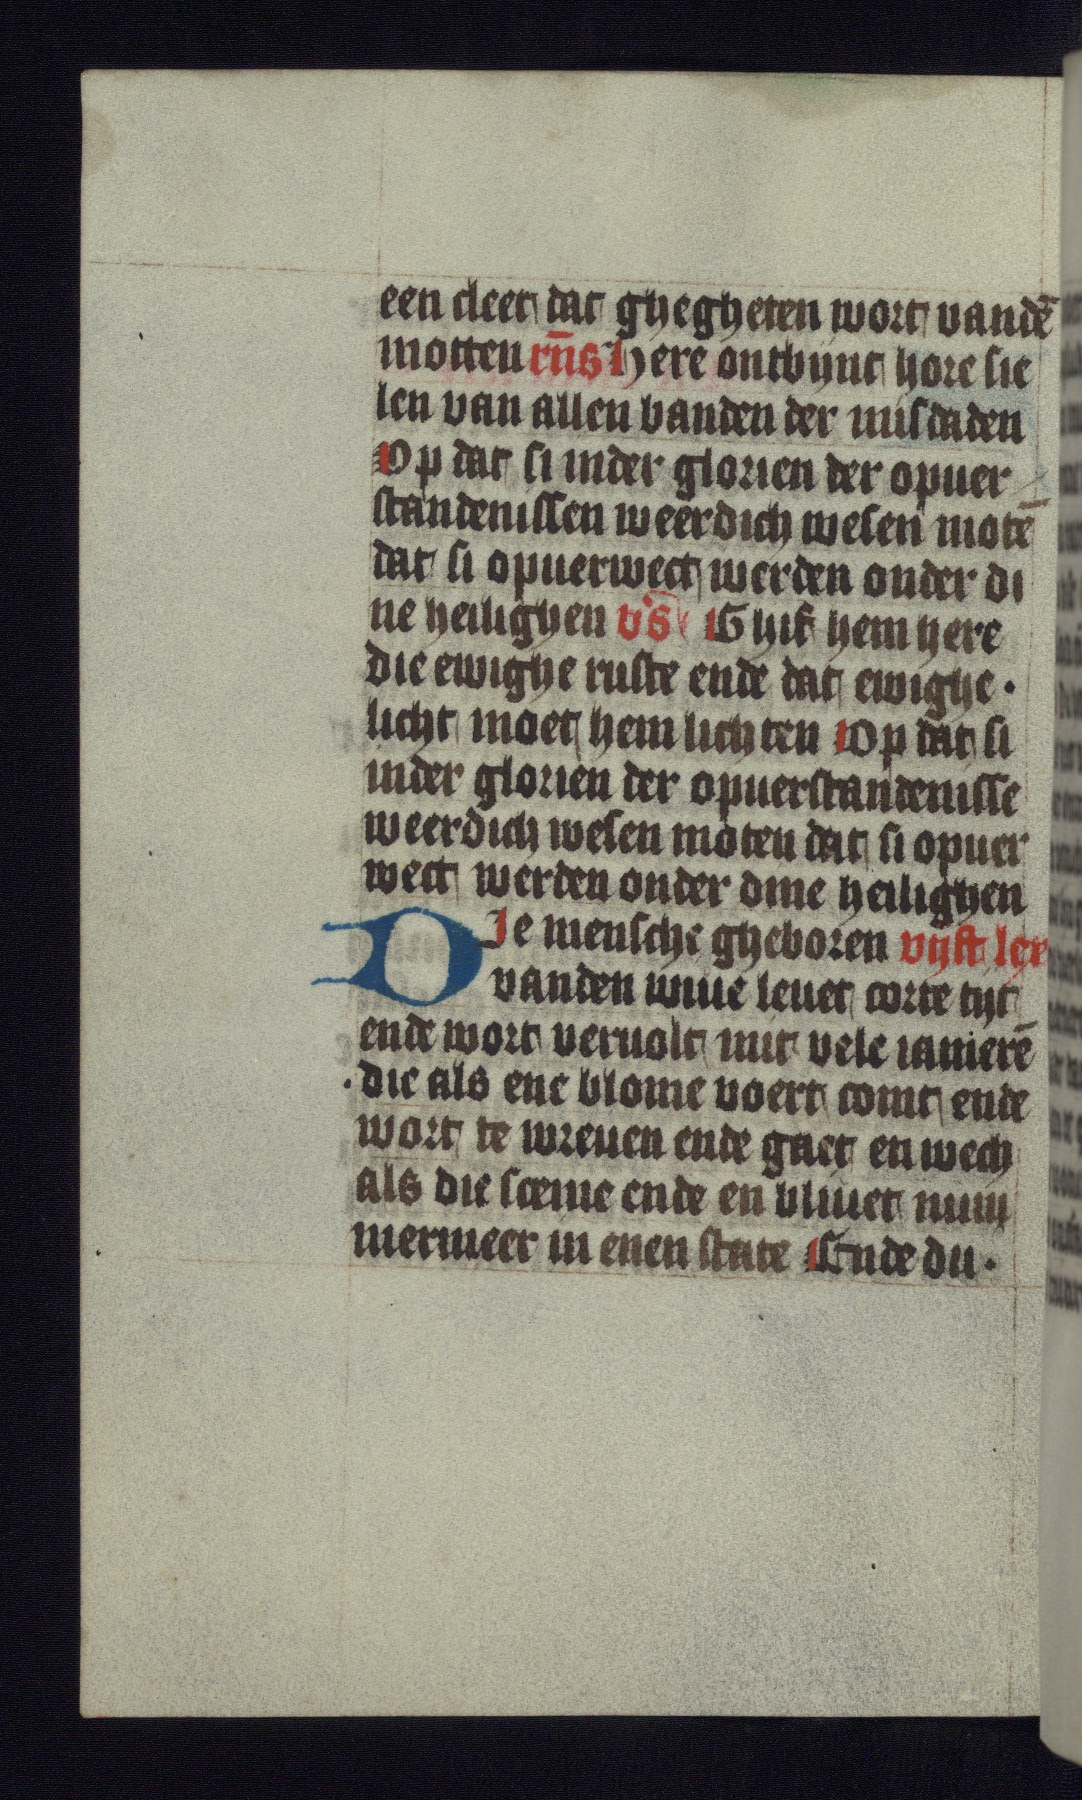 een cleet dat ghegheten wort vandē
motten rn̄s Here ontbijnt hore sie
len van allen banden der misdaden
Op dat si inder glorien der opuer
standenissen weerdich wesen motē
dat si opuerwect werden onder di
ne heilighen vs̄ Ghif hem here
die ewighe ruste ende dat ewighe·
licht moet hem lichten Op dat si
inder glorien der opuerstandenisse
weerdich wesen moten dat si opuer
wect werden onder dine heilighen
DIe mensche gheboren vijft ler
vanden wiue leuet corte tijt
ende wort veruolt mit vele iamerē
·die als ene blome voert comt ende
wort te wreuen ende gaet en wech
als die sceme ende en bliuet num
mermeer in enen state Ende du·